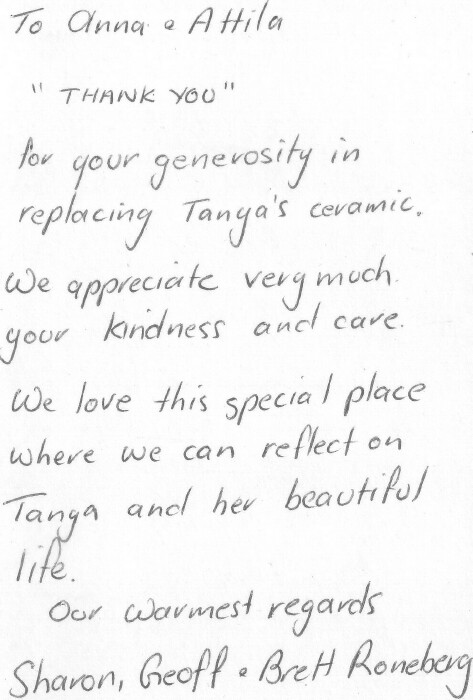 To Anna & Attila
"THANK YOU"
for your generosity in
replacing Tanya's ceramic.
We appreciate very much
your kindness and care.
We love this special place
where we can reflect on
Tanya and her beautiful
life.
Our warmest regards
Sharon, Geoff & Brett Roneberg